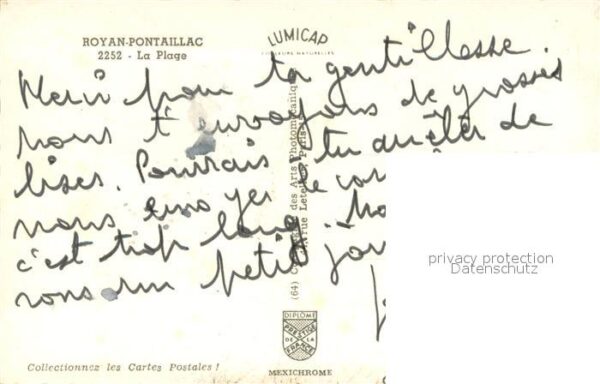 ROYAN-PONTAILLAC
2252 - La Plage
LUMICAP
COULEURS NATURELLES
Merci pour ta gentillesse.
nous t'envoyons de grosses
bises. Pourrais tu arrêter de
nous envoyer de
c'est trop long.
un petit
(64) des Arts Photomécaniques
rue Paris
privacy protection
Datenschutz
DIPLOME
PRESTIGE
DE LA
FRANCE
MEXICHROME
Collectionnez les Cartes Postales !